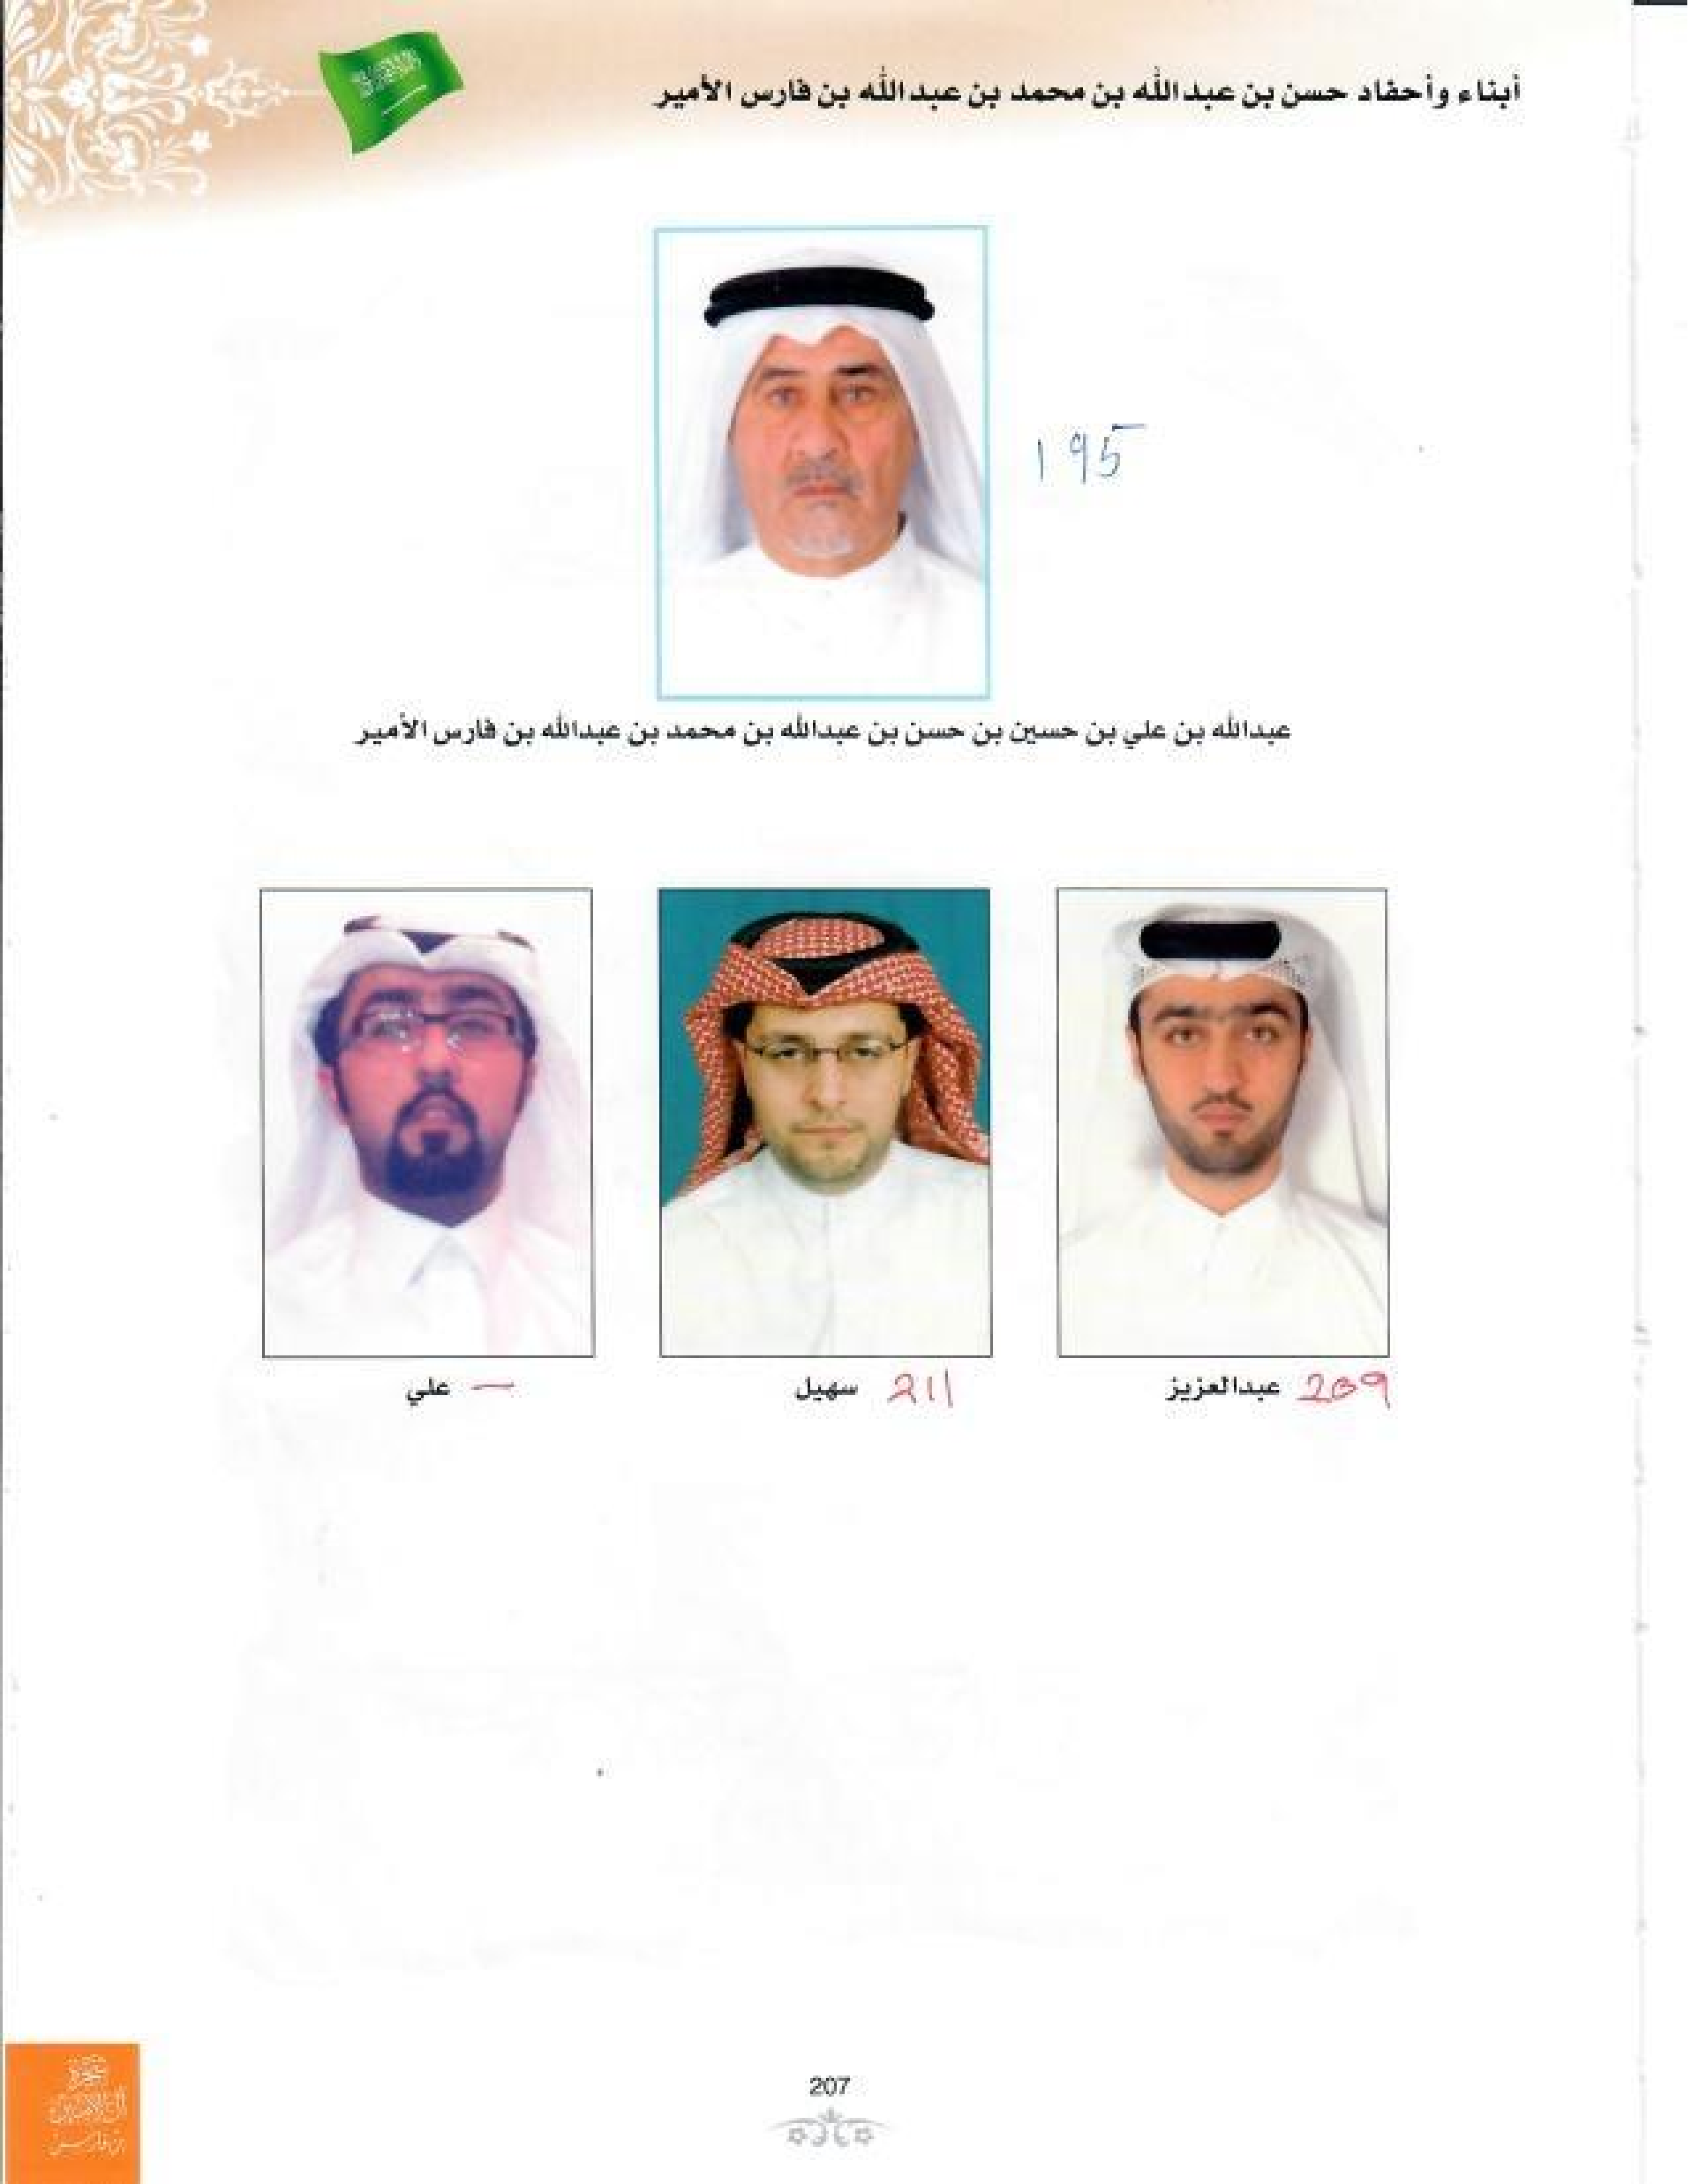 أبناء وأحفاد حسن بن عبدالله بن محمد بن عبدالله بن فارس الأمير
195
عبدالله بن علي بن حسين بن حسن بن عبدالله بن محمد بن عبدالله بن فارس الأمير
209 عبدالعزيز
211 سهيل
— علي
شجرة
بن فارس
207